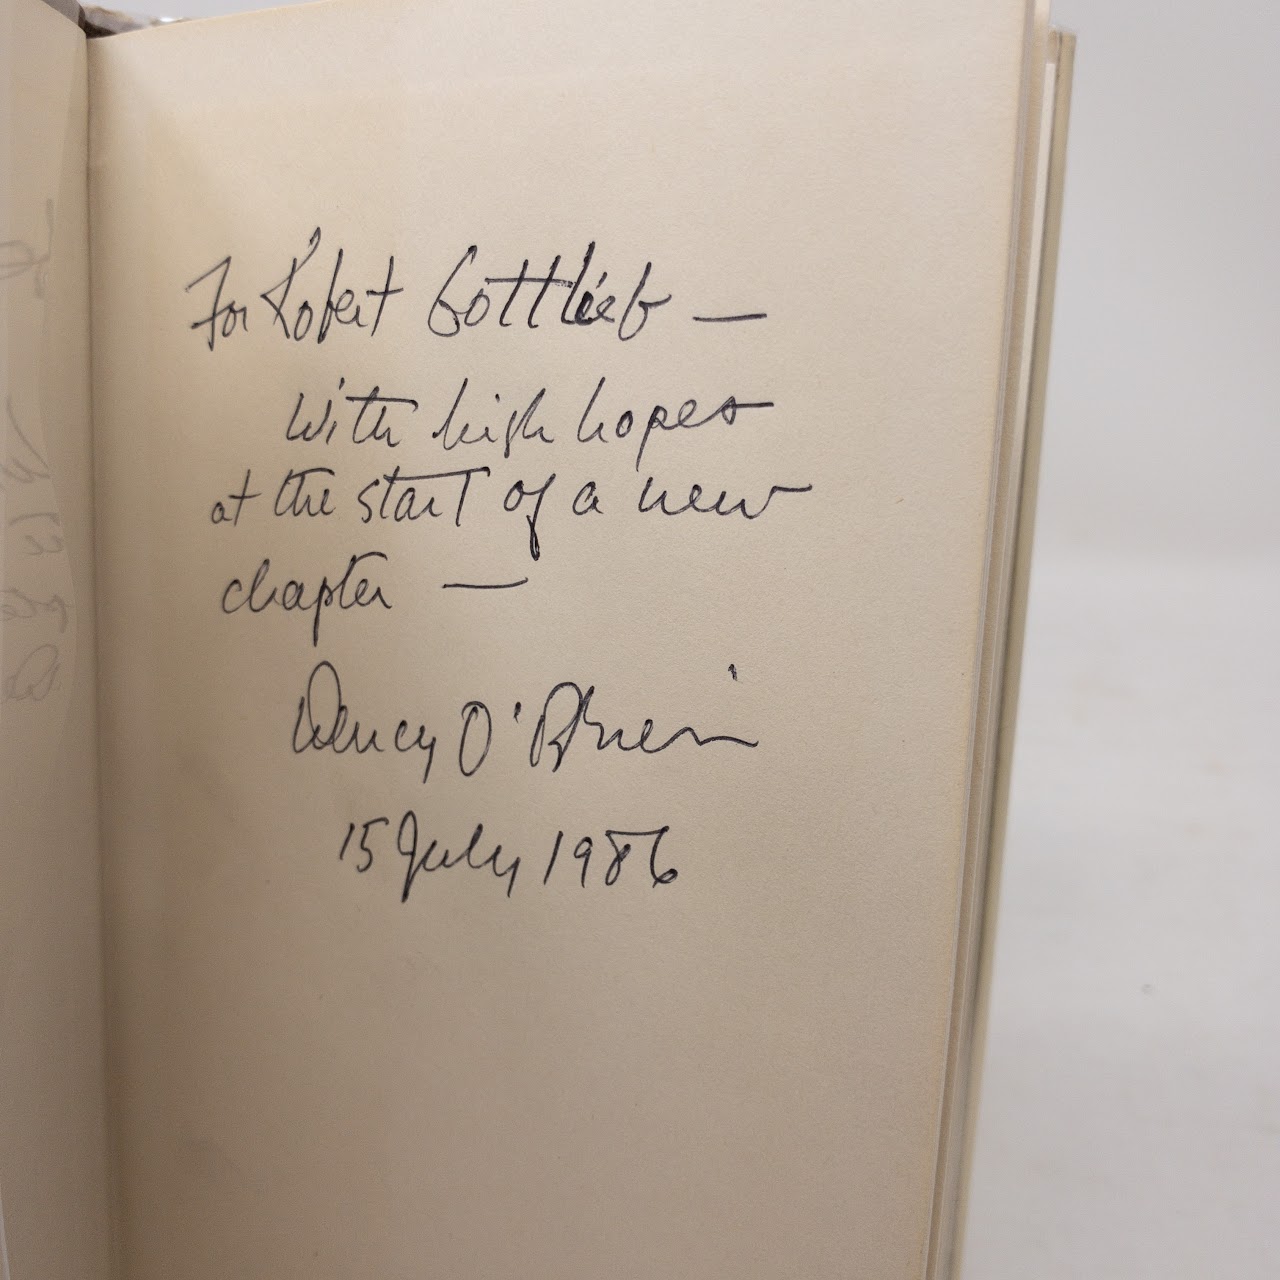 For Robert Gottlieb —
with high hopes
at the start of a new
chapter —
Darcy O'Brien
15 July 1986